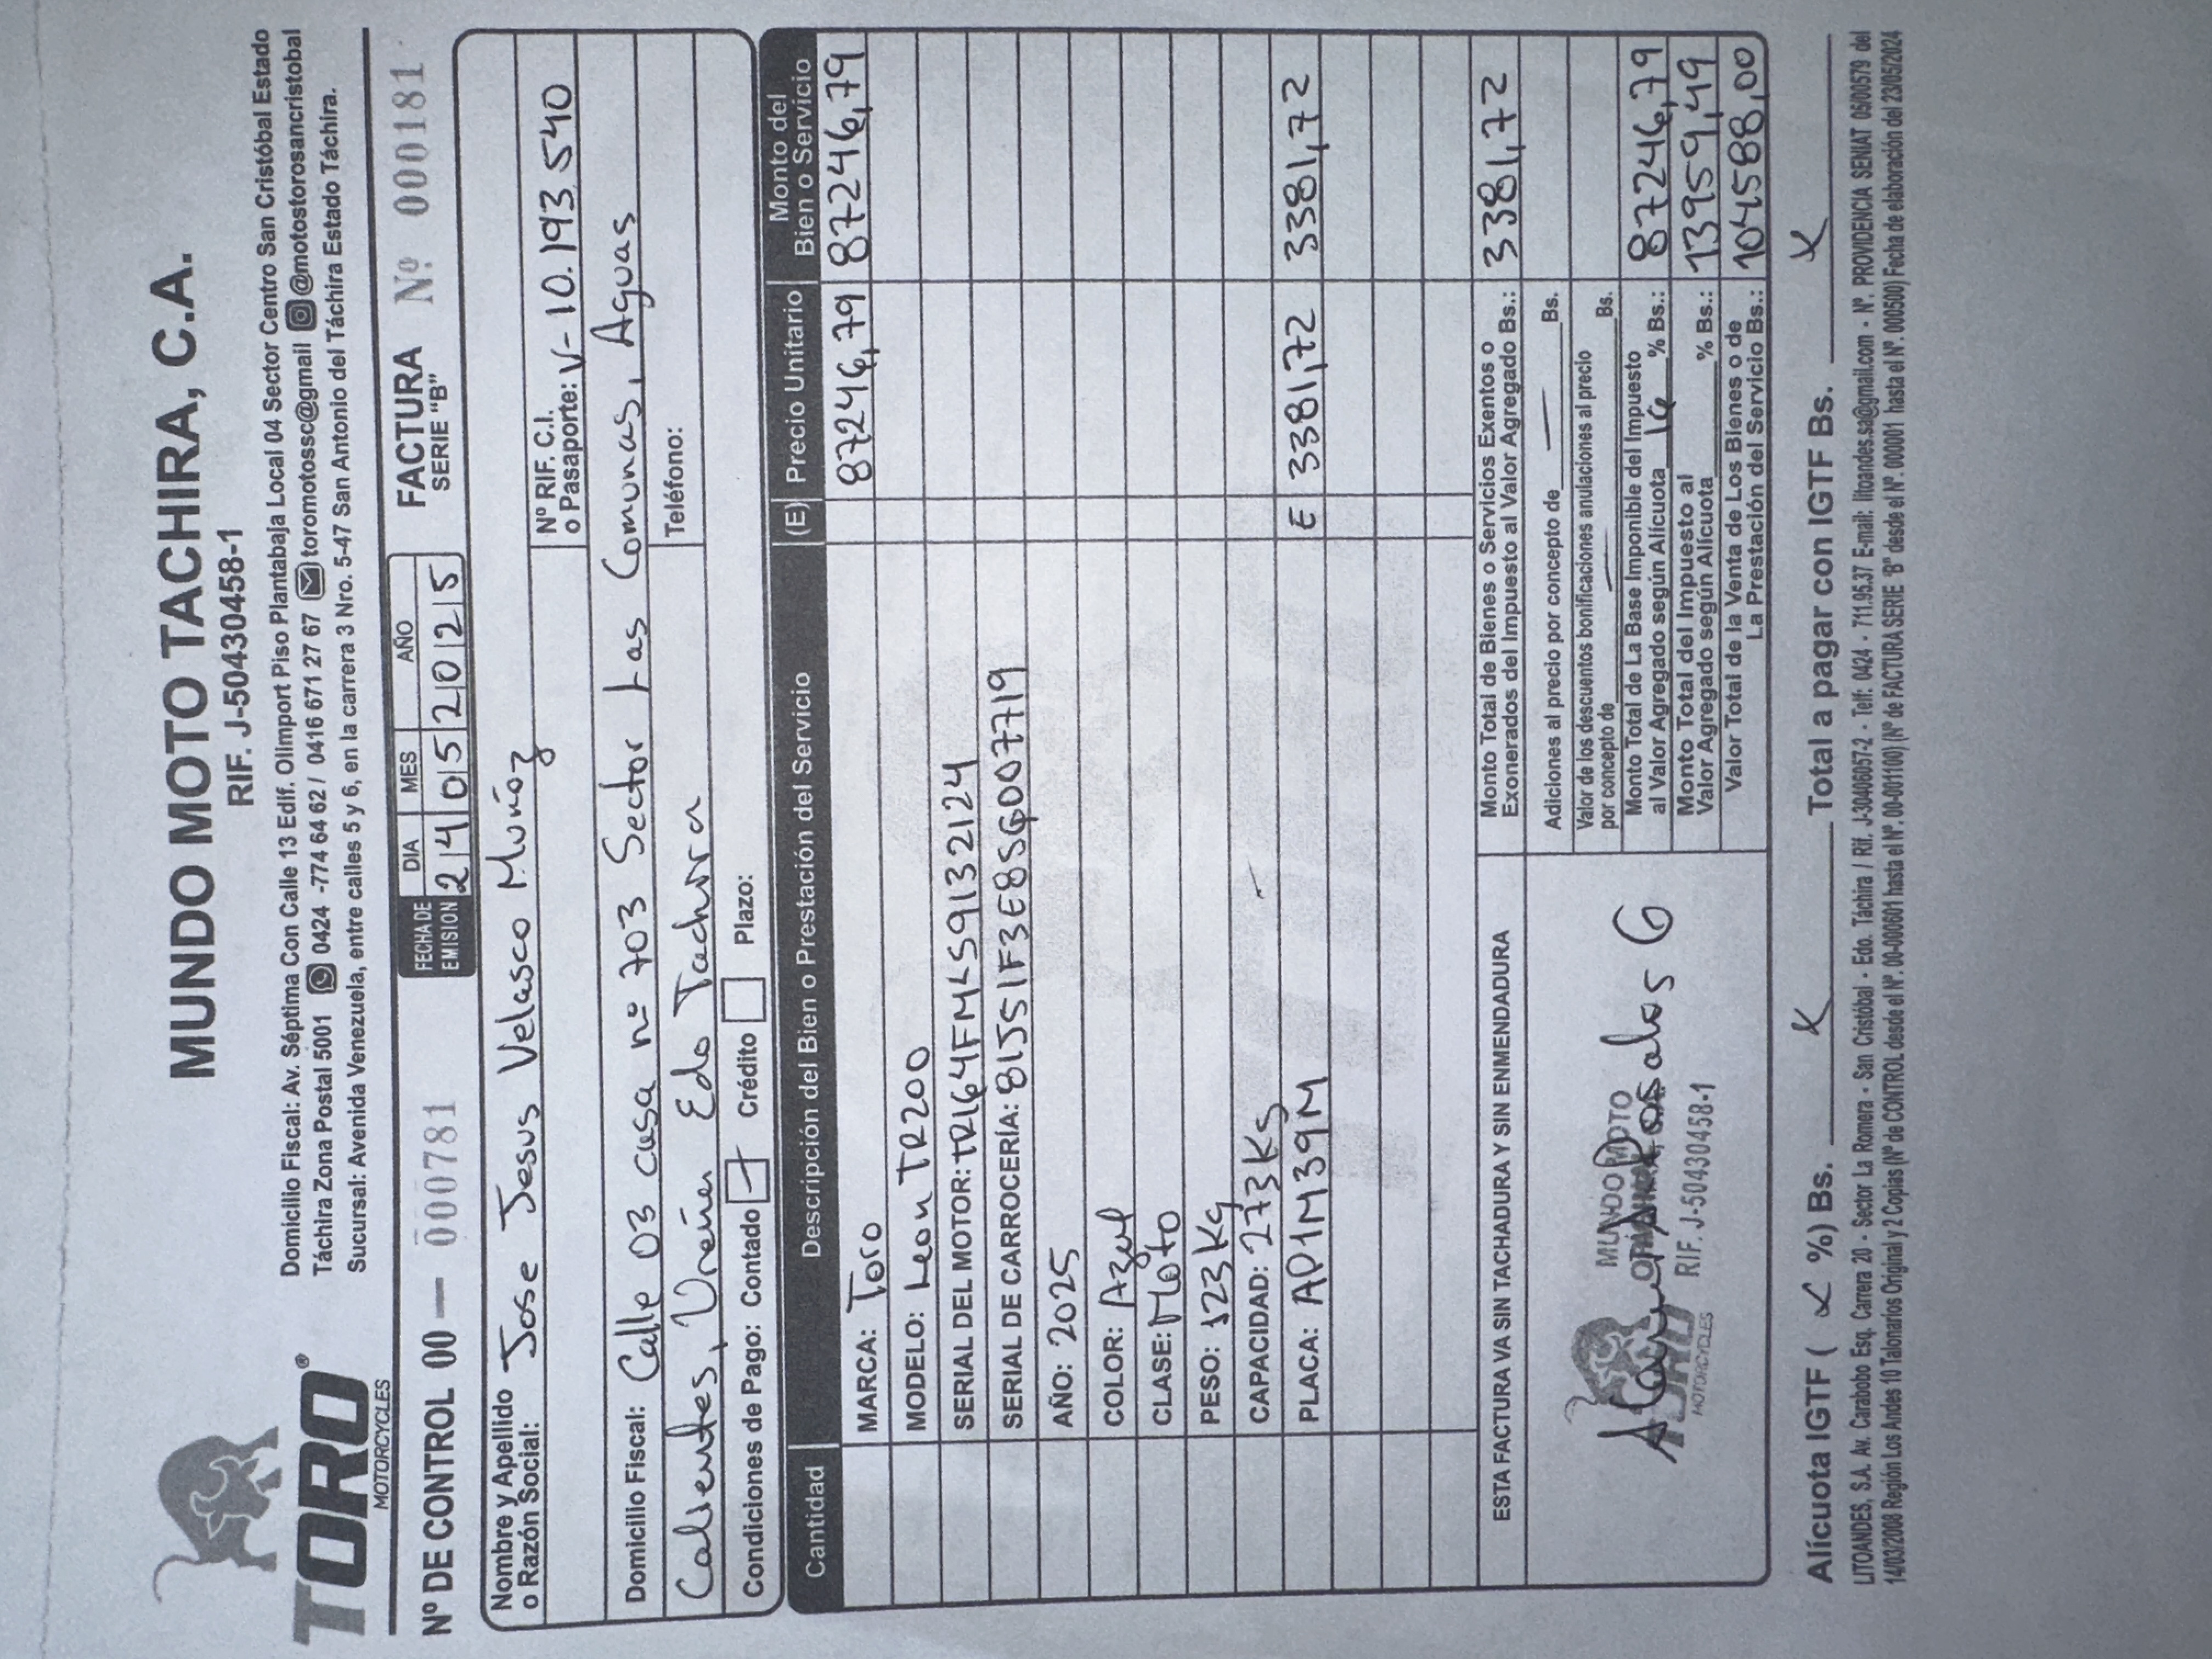 TORO®
MOTORCYCLES
MUNDO MOTO TACHIRA, C.A.
RIF. J-50430458-1
Domicilio Fiscal: Av. Séptima Con Calle 13 Edif. Olimport Piso Plantabaja Local 04 Sector Centro San Cristóbal Estado
Táchira Zona Postal 5001 0424 -774 64 62 / 0416 671 27 67 toromotossc@gmail @motostorosancristobal
Sucursal: Avenida Venezuela, entre calles 5 y 6, en la carrera 3 Nro. 5-47 San Antonio del Táchira Estado Táchira.
Nº DE CONTROL 00 — 000781
FECHA DE EMISION DIA 24 MES 05 AÑO 2025
FACTURA Nº 000181
SERIE "B"
Nombre y Apellido
o Razón Social: Jose Jesus Velasco Muñoz
Nº RIF. C.I.
o Pasaporte: V- 10.193.540
Domicilio Fiscal: Calle 03 casa nº 703 Sector Las Comunas, Aguas
Calientes, Ureña Edo Tachira
Teléfono:
Condiciones de Pago: Contado Crédito Plazo:
Cantidad Descripción del Bien o Prestación del Servicio (E) Precio Unitario Monto del Bien o Servicio
MARCA: Toro 87246,79 87246,79
MODELO: Leon TR200
SERIAL DEL MOTOR: TR164FMLS9132124
SERIAL DE CARROCERÍA: 81JS1F3E8SG007719
AÑO: 2025
COLOR: Azul
CLASE: Moto
PESO: 123Kg
CAPACIDAD: 273Kg
PLACA: AP1M39M E 3381,72 3381,72
ESTA FACTURA VA SIN TACHADURA Y SIN ENMENDADURA
Monto Total de Bienes o Servicios Exentos o
Exonerados del Impuesto al Valor Agregado Bs.: 3381,72
Adiciones al precio por concepto de — Bs.
Valor de los descuentos bonificaciones anulaciones al precio
por concepto de — Bs.
Monto Total de La Base Imponible del Impuesto
al Valor Agregado según Alícuota 16 % Bs.: 87246,79
Monto Total del Impuesto al
Valor Agregado según Alícuota % Bs.: 13959,49
Valor Total de la Venta de Los Bienes o de
La Prestación del Servicio Bs.: 104588,00
MUNDO MOTO
RIF. J-50430458-1
MOTORCYCLES
Alícuota IGTF ( %) Bs. Total a pagar con IGTF Bs.
LITOANDES, S.A. Av. Carabobo Esq. Carrera 20 - Sector La Romera - San Cristóbal - Edo. Táchira / Rif. J-30406057-2 - Telf: 0424 - 711.95.37 E-mail: litoandes.sa@gmail.com - Nº. PROVIDENCIA SENIAT 06/00579 del
14/03/2008 Región Los Andes 10 Talonarios Original y 2 Copias (Nº de CONTROL desde el Nº. 00-000601 hasta el Nº. 00-001100) (Nº de FACTURA SERIE "B" desde el Nº. 000001 hasta el Nº. 000500) Fecha de elaboración del 23/05/2024